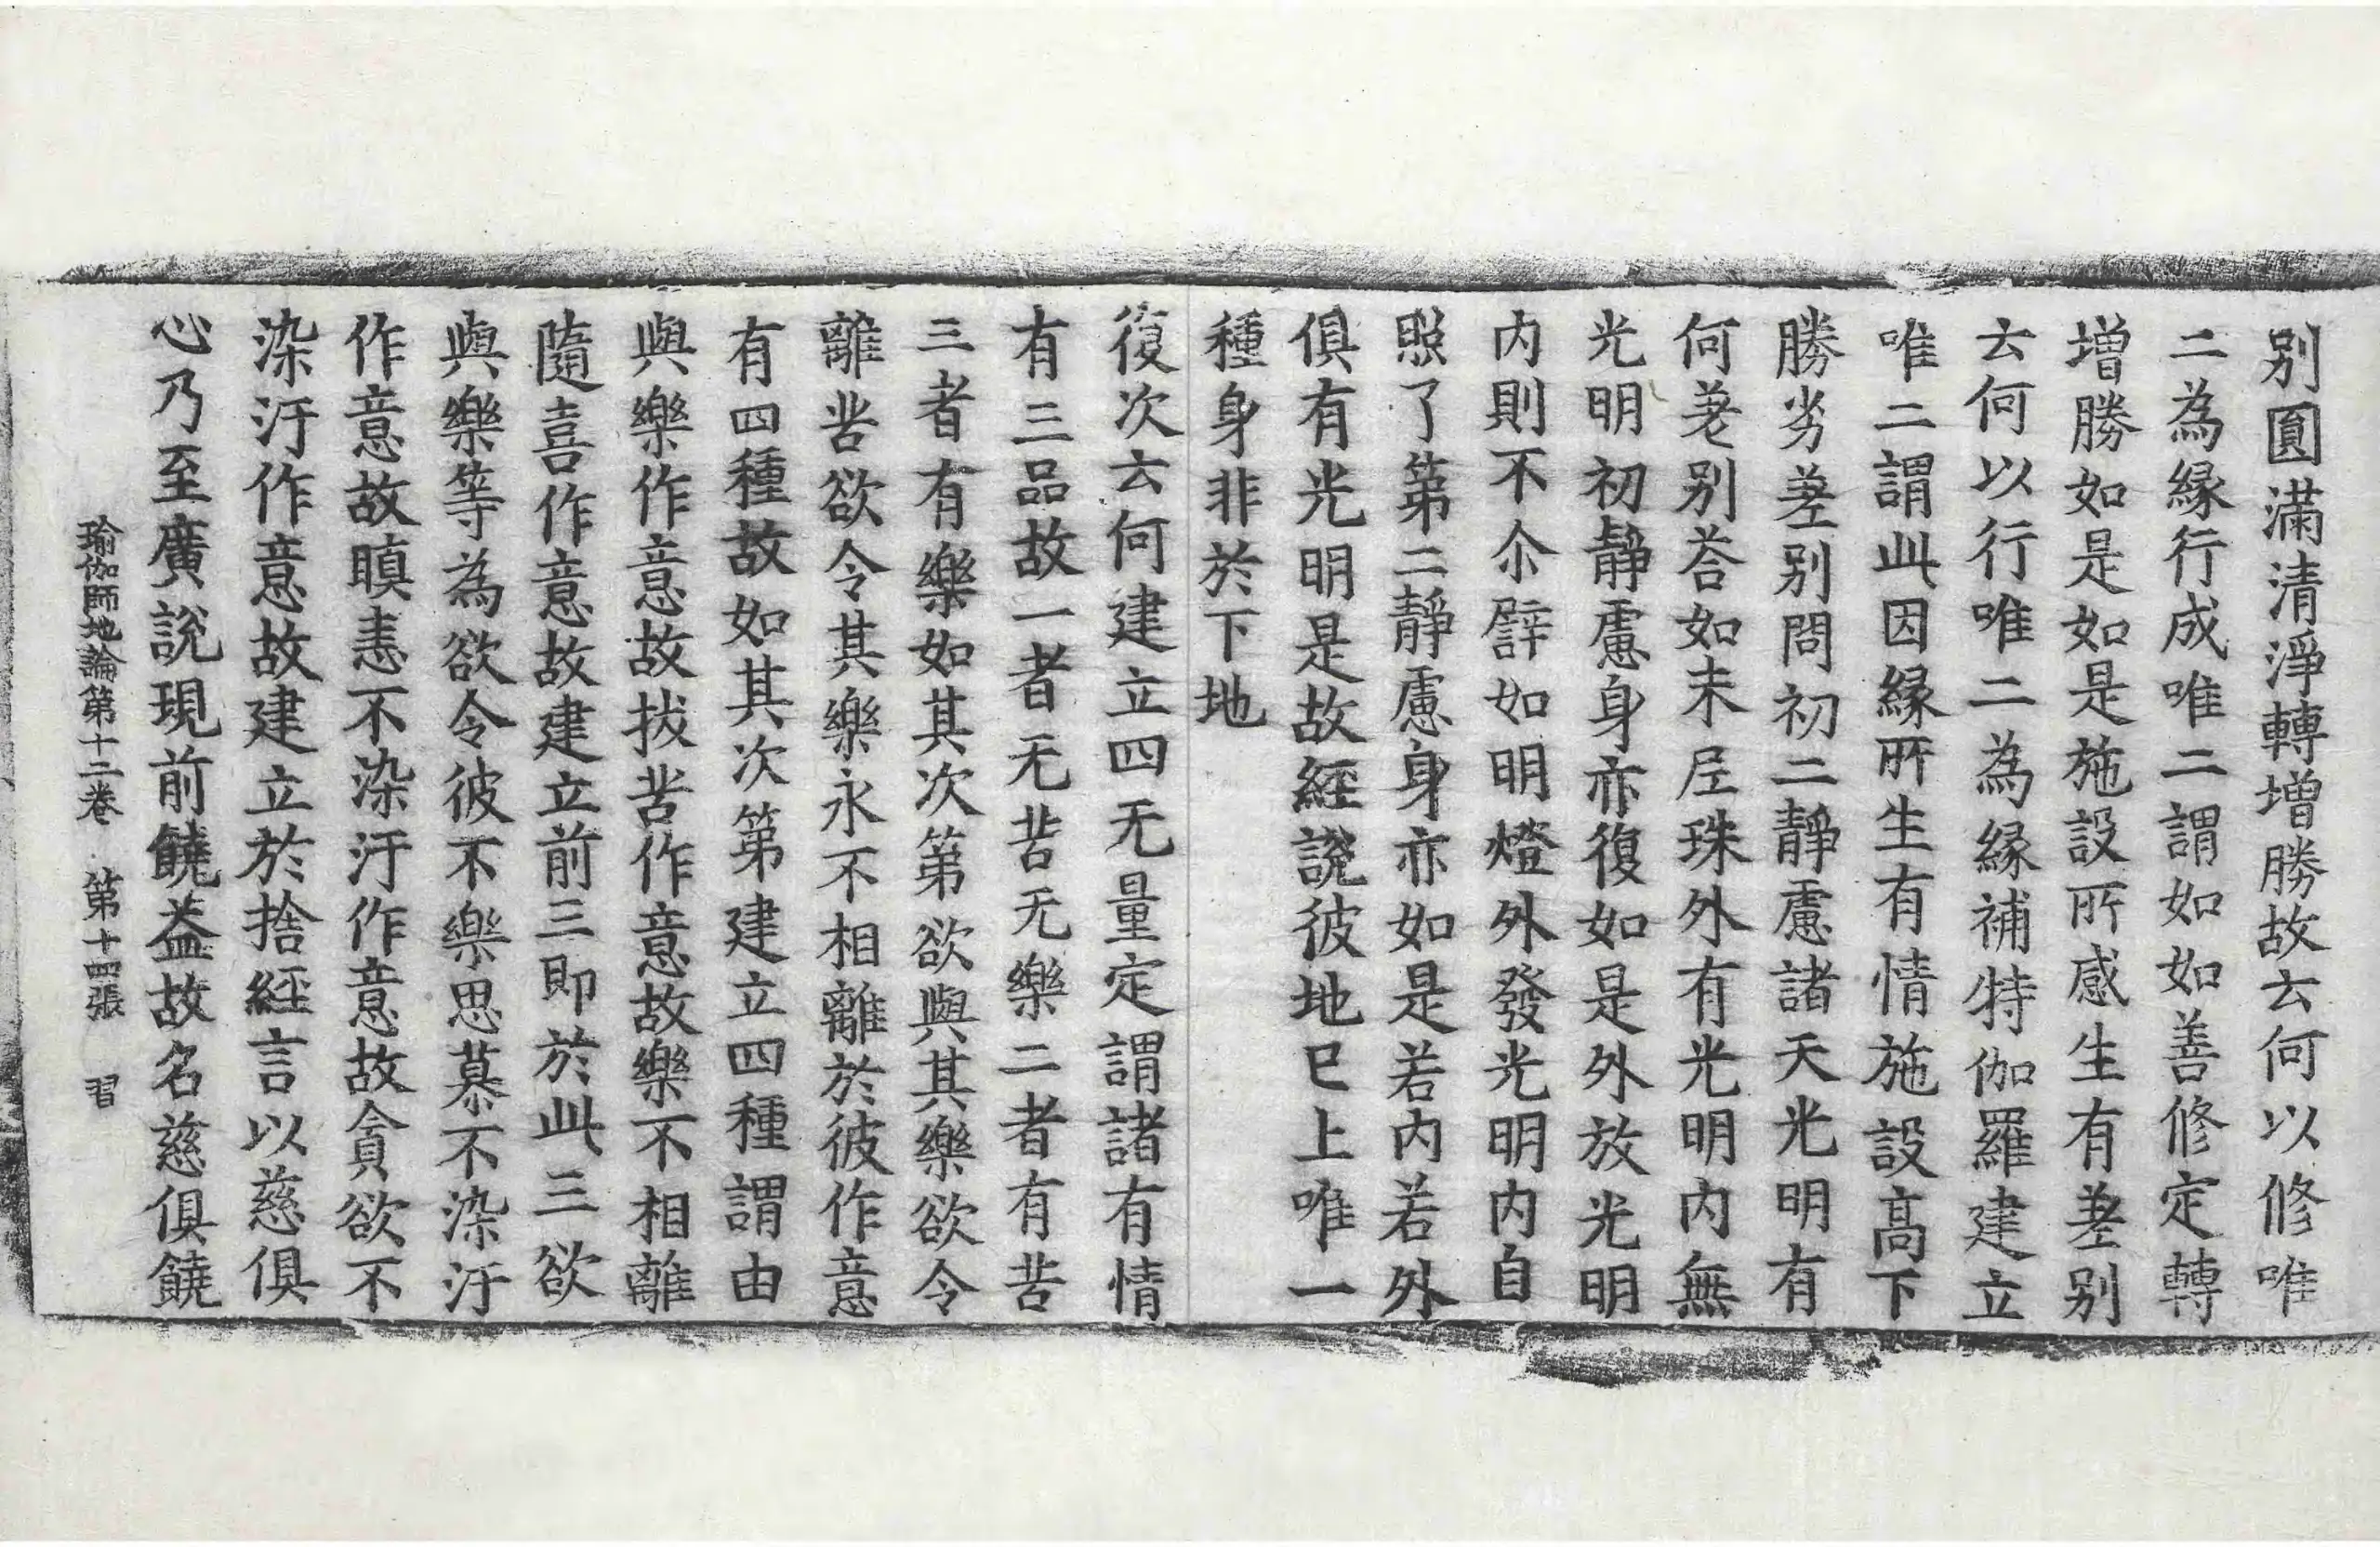 别圓滿清淨轉增勝故云何以修唯
二為緣行成唯二謂如如善修定轉
增勝如是如是施設所感生有差别
云何以行唯二為緣補特伽羅建立
唯二謂此因緣所生有情施設髙下
勝劣差别問初二靜慮諸天光明有
何差别荅如末尼珠外有光明内無
光明初靜慮身亦復如是外放光明
内則不尒譬如明燈外發光明内自
照了第二靜慮身亦如是若内若外
俱有光明是故經說彼地已上唯一
種身非於下地
復次云何建立四无量定謂諸有情
有三品故一者无苦无樂二者有苦
三者有樂如其次第欲與其樂欲令
離苦欲令其樂永不相離於彼作意
有四種故如其次第建立四種謂由
與樂作意故拔苦作意故樂不相離
隨喜作意故建立前三即於此三欲
與樂等為欲令彼不樂思慕不染汙
作意故瞋恚不染汙作意故貪欲不
染汙作意故建立於捨經言以慈俱
心乃至廣說現前饒益故名慈俱饒
瑜伽師地論第十二卷 第十四張 習